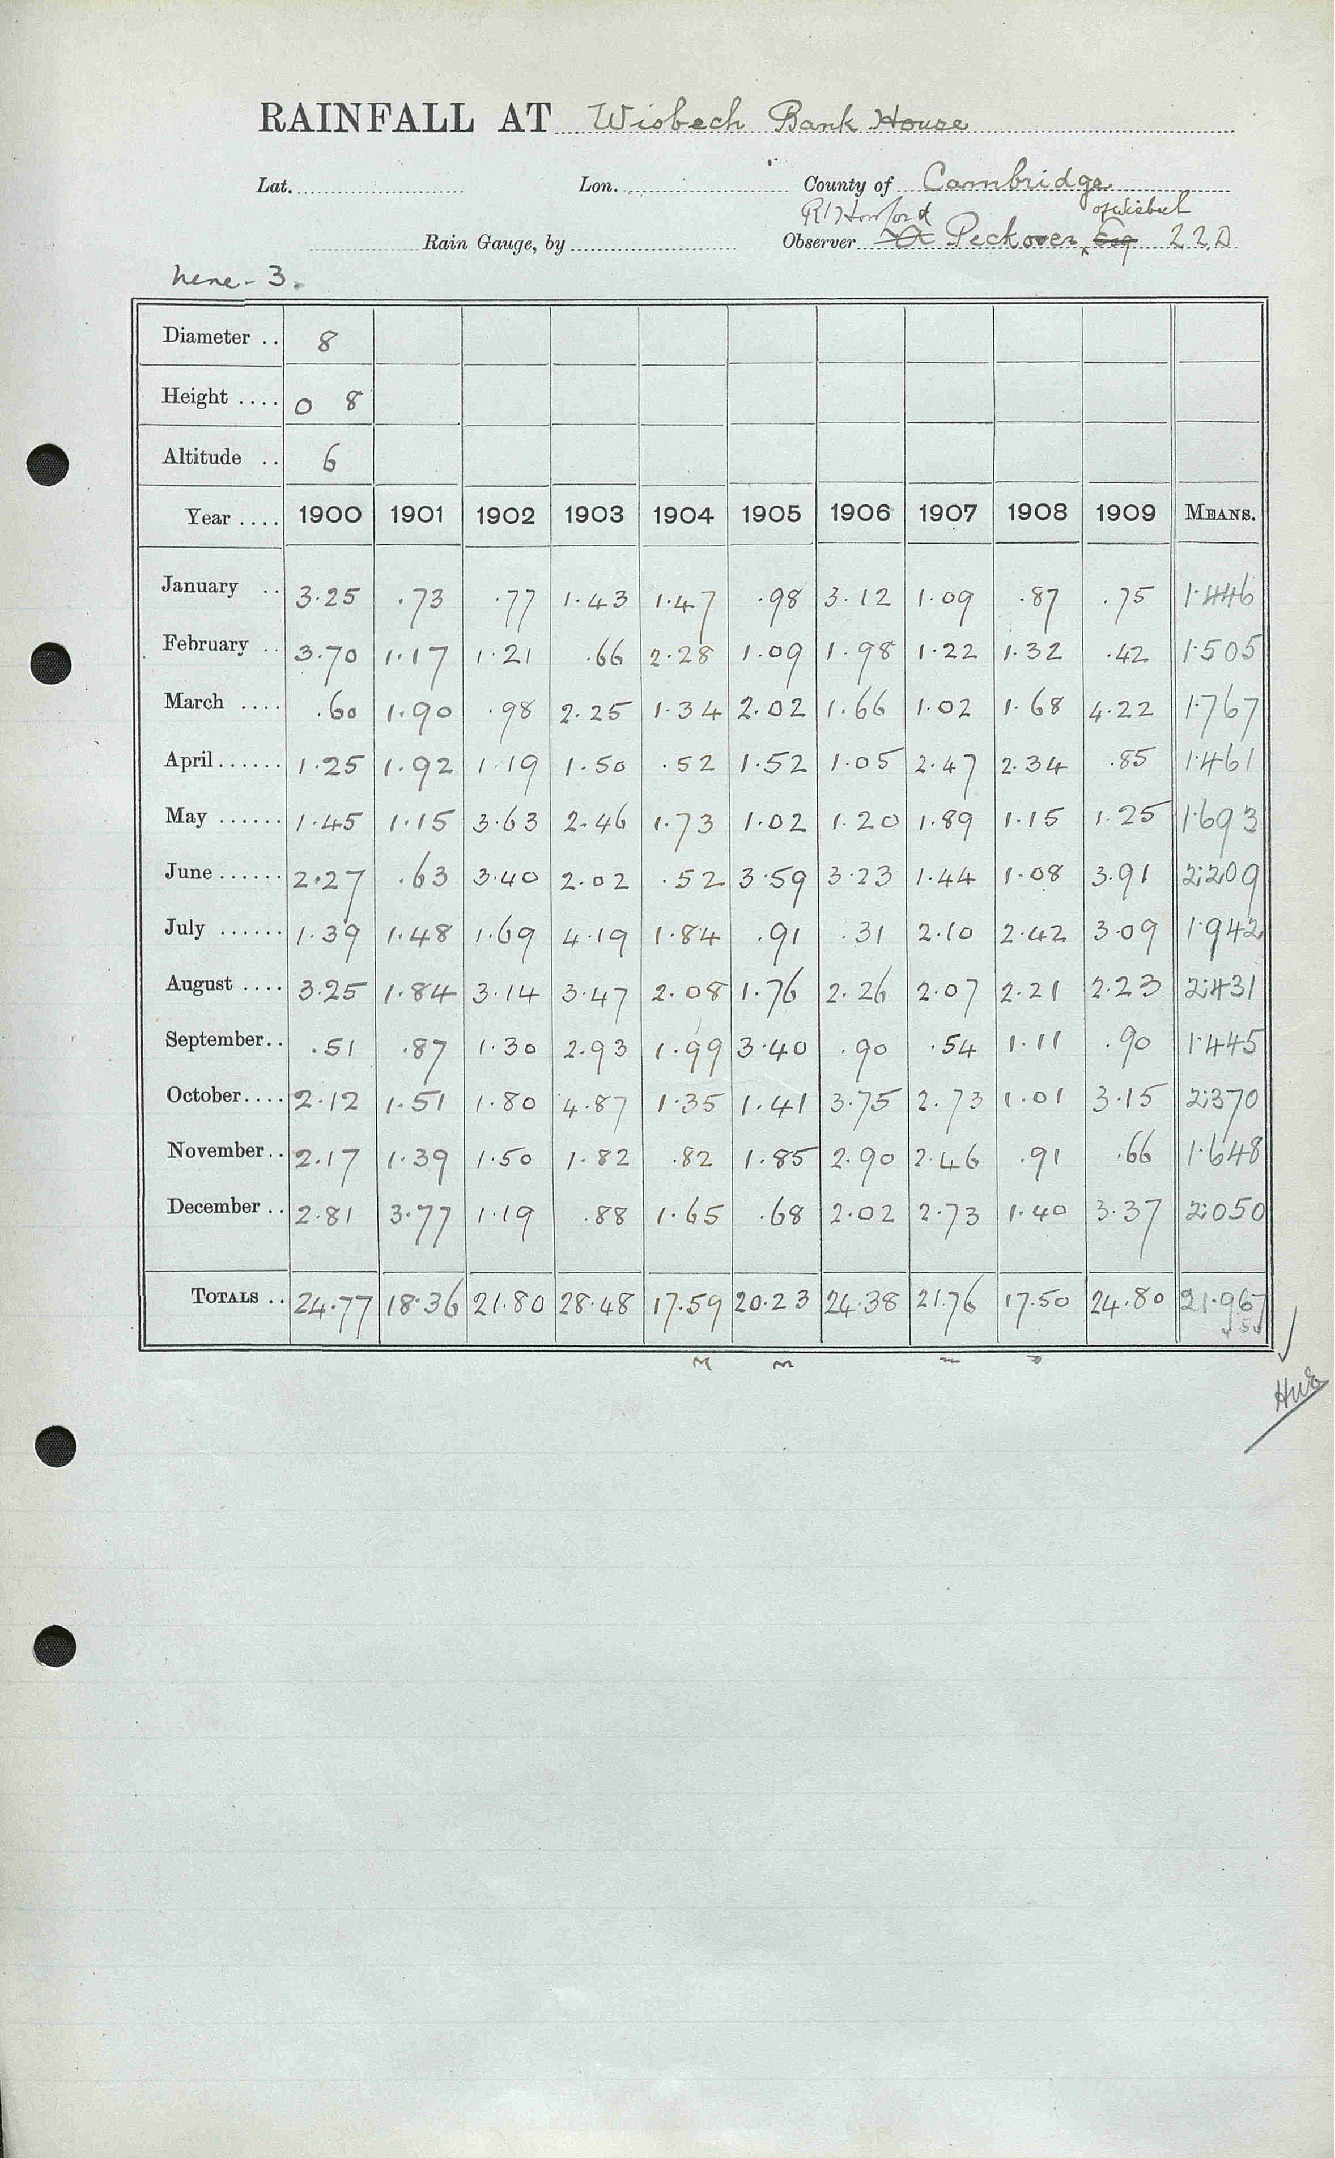 RAINFALL AT Wisbech Bank House
Lat. Lon. County of Cambridge
of Wisbech
Rain Gauge, by Observer A Peckover, Esq 22 D
Nene - 3.
Diameter .. 8
Height .... 0 8
Altitude .. 6
Year .... 1900 1901 1902 1903 1904 1905 1906 1907 1908 1909 MEANS.
January .. 3.25 .73 .77 1.43 1.47 .98 3.12 1.09 .87 .75 1.446
February .. 3.70 1.17 1.21 .66 2.28 1.09 1.98 1.22 1.32 .42 1.505
March .... .60 1.90 .98 2.25 1.34 2.02 1.66 1.02 1.68 4.22 1.767
April ...... 1.25 1.92 1.19 1.50 .52 1.52 1.05 2.47 2.34 .85 1.461
May ...... 1.45 1.15 3.63 2.46 1.73 1.02 1.20 1.89 1.15 1.25 1.693
June ...... 2.27 .63 3.40 2.02 .52 3.59 3.23 1.44 1.08 3.91 2.209
July ...... 1.39 1.48 1.69 4.19 1.84 .91 .31 2.10 2.42 3.09 1.942
August .... 3.25 1.84 3.14 3.47 2.08 1.76 2.26 2.07 2.21 2.23 2.431
September .. .51 .87 1.30 2.93 1.99 3.40 .90 .54 1.11 .90 1.445
October .... 2.12 1.51 1.80 4.87 1.35 1.41 3.75 2.73 1.01 3.15 2.370
November .. 2.17 1.39 1.50 1.82 .82 1.85 2.90 2.46 .91 .66 1.648
December .. 2.81 3.77 1.19 .88 1.65 .68 2.02 2.73 1.40 3.37 2.050
TOTALS .. 24.77 18.36 21.80 28.48 17.59 20.23 24.38 21.76 17.50 24.80 21.967